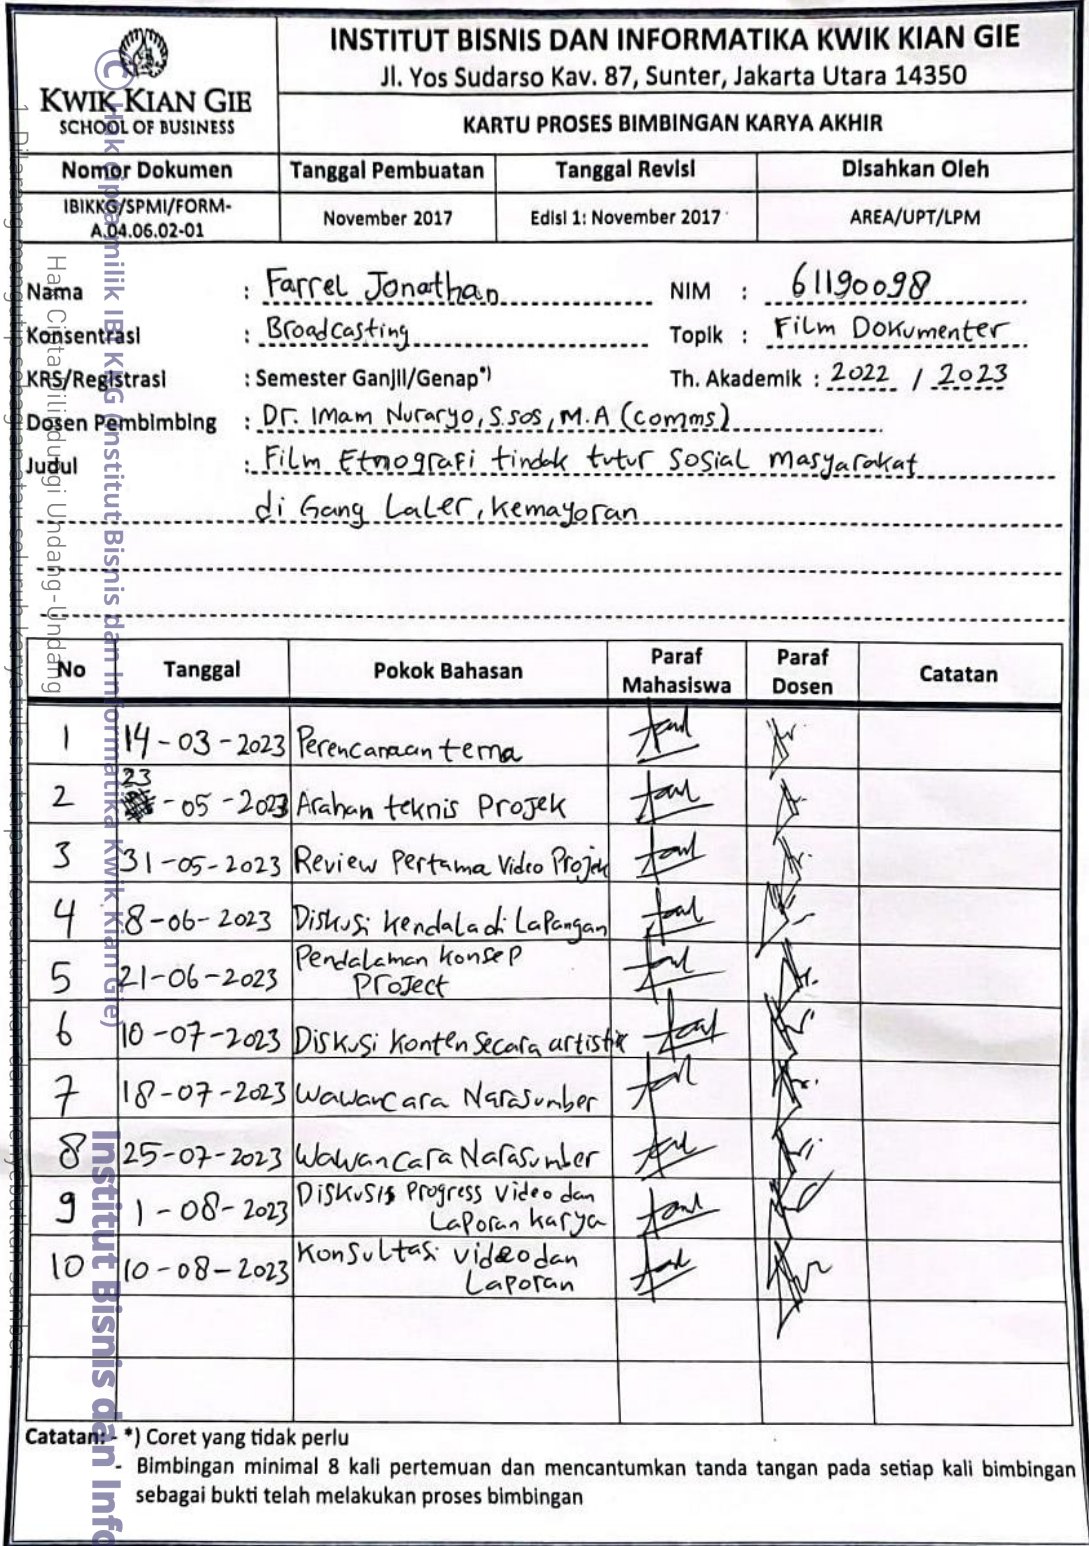 INSTITUT BISNIS DAN INFORMATIKA KWIK KIAN GIE
Jl. Yos Sudarso Kav. 87, Sunter, Jakarta Utara 14350
KWIK KIAN GIE
SCHOOL OF BUSINESS
KARTU PROSES BIMBINGAN KARYA AKHIR
Nomor Dokumen Tanggal Pembuatan Tanggal Revisi Disahkan Oleh
IBIKKG/SPMI/FORM-
A.04.06.02-01
November 2017 Edisi 1: November 2017 AREA/UPT/LPM
Nama : Farrel Jonathan NIM : 61190098
Konsentrasi : Broadcasting Topik : Film Dokumenter
KRS/Registrasi : Semester Ganjil/Genap*) Th. Akademik : 2022 / 2023
Dosen Pembimbing : Dr. Imam Nuraryo, S.sos, M.A (comms)
Judul : Film Etnografi tindak tutur Sosial masyarakat
di Gang Laler, Kemayoran
No Tanggal Pokok Bahasan Paraf Mahasiswa Paraf Dosen Catatan
1 14-03-2023 Perencanaan tema
2 23 -05-2023 Arahan teknis Projek
3 31-05-2023 Review Pertama Video Projek
4 8-06-2023 Diskusi Kendala di Lapangan
5 21-06-2023 Pendalaman Konsep
Project
6 10-07-2023 Diskusi Konten Secara artistik
7 18-07-2023 Wawancara Narasumber
8 25-07-2023 Wawancara Narasumber
9 1-08-2023 Diskusis Progress Video dan
Laporan Karya
10 10-08-2023 Konsultasi video dan
Laporan
Catatan: - *) Coret yang tidak perlu
- Bimbingan minimal 8 kali pertemuan dan mencantumkan tanda tangan pada setiap kali bimbingan
sebagai bukti telah melakukan proses bimbingan
© Hak cipta milik IBI KKG (Institut Bisnis dan Informatika Kwik Kian Gie)
Institut Bisnis dan Info
Hak Cipta Dilindungi Undang-Undang